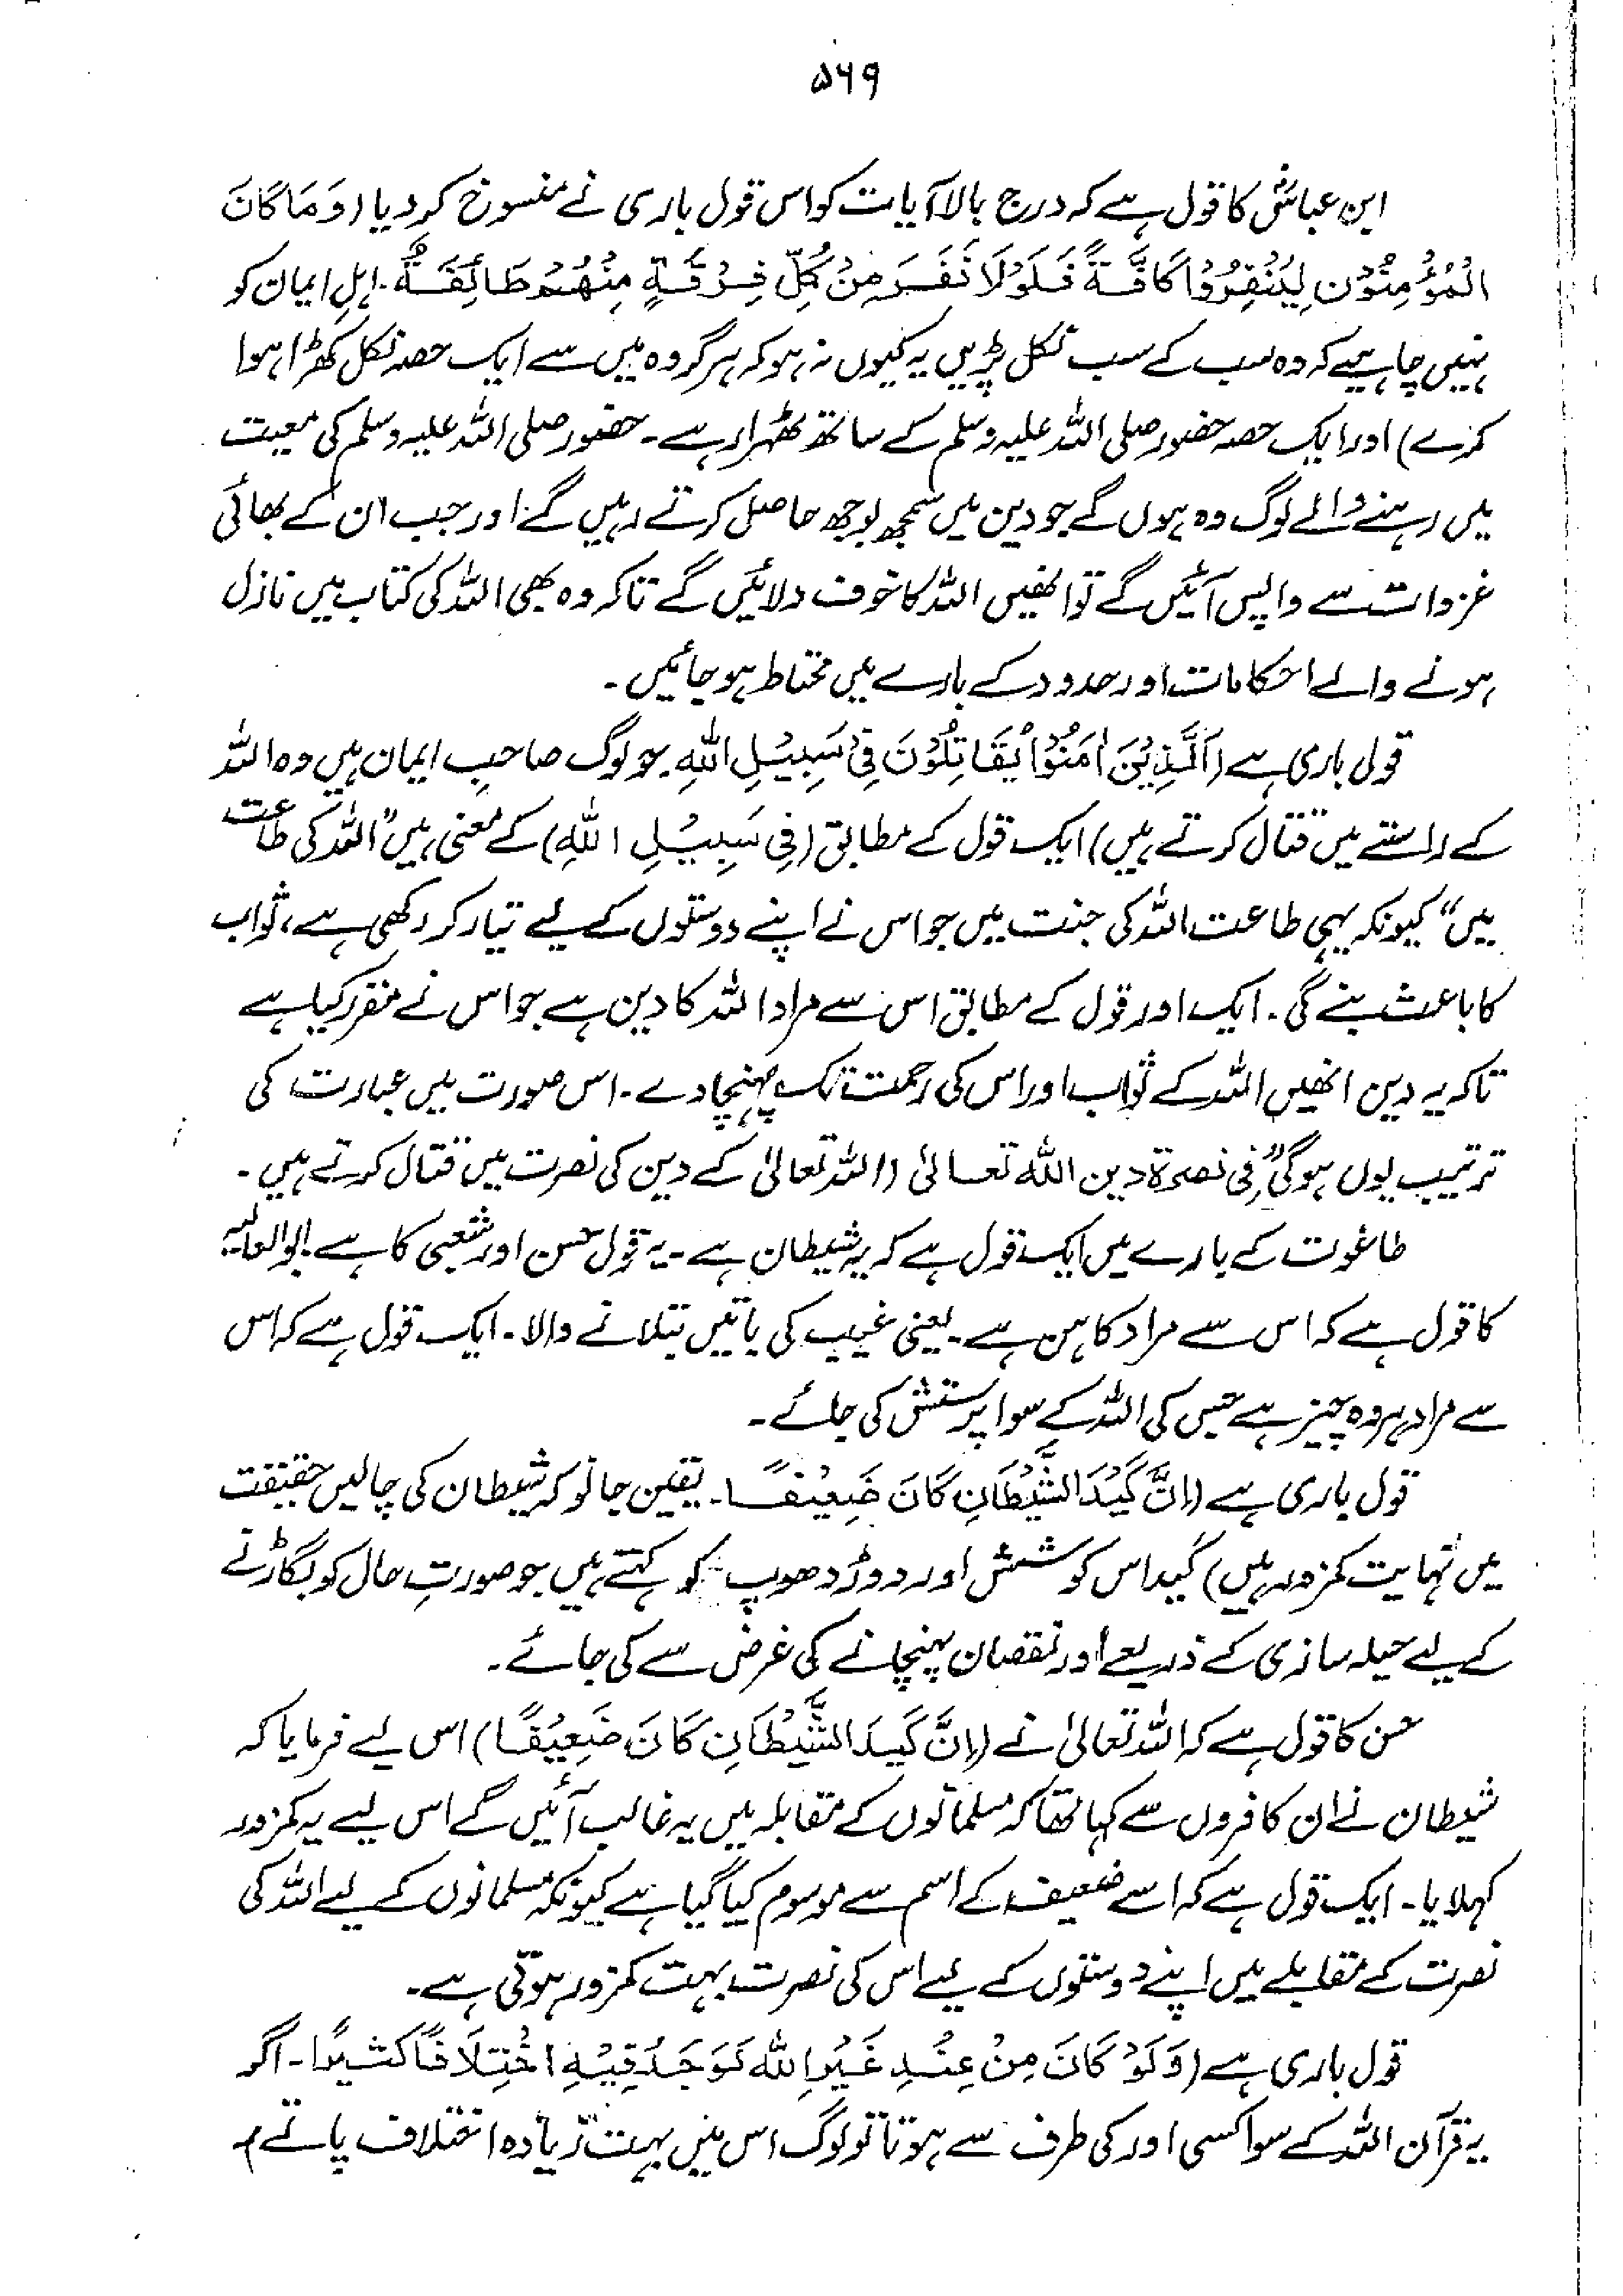 ۵۶۹
ابن عباسؓ کا قول ہے کہ درج بالا آیات کو اس قول باری نے منسوخ کر دیا (وَمَا كَانَ
الْمُؤْمِنُوْنَ لِيَنْفِرُوْا كَافَّةً فَلَوْلَا نَفَرَ مِنْ كُلِّ فِرْقَةٍ مِنْهُمْ طَائِفَةٌ۔ اہلِ ایمان کو
نہیں چاہیے کہ وہ سب کے سب نکل پڑیں یہ کیوں نہ ہو کہ ہر گروہ میں سے ایک حصہ نکل کھڑا ہوا
کرے) اور ایک حصہ حضور صلی اللہ علیہ وسلم کے ساتھ ٹھہرا رہے۔ حضور صلی اللہ علیہ وسلم کی معیت
میں رہنے والے لوگ وہ ہوں گے جو دین میں سمجھ بوجھ حاصل کرتے رہیں گے۔ اور جب ان کے بھائی
غزوات سے واپس آئیں گے تو انھیں اللہ کا خوف دلائیں گے تاکہ وہ بھی اللہ کی کتاب میں نازل
ہونے والے احکامات اور حدود کے بارے میں محتاط ہو جائیں۔
قول باری ہے (اَلَّذِيْنَ اٰمَنُوْا يُقَاتِلُوْنَ فِيْ سَبِيْلِ اللّٰهِ۔ جو لوگ صاحبِ ایمان ہیں وہ اللہ
کے راستے میں قتال کرتے ہیں) ایک قول کے مطابق (فِي سَبِيْلِ اللّٰهِ) کے معنی ہیں "اللہ کی طاعت
میں" کیونکہ یہی طاعت اللہ کی جنت میں جو اس نے اپنے دوستوں کے لیے تیار کر رکھی ہے، ثواب
کا باعث بنے گی۔ ایک اور قول کے مطابق اس سے مراد اللہ کا دین ہے جو اس نے مقرر کیا ہے
تاکہ یہ دین انھیں اللہ کے ثواب اور اس کی رحمت تک پہنچا دے۔ اس صورت میں عبارت کی
ترتیب یوں ہوگی "فِی نصرة دین اللہ تعالیٰ (اللہ تعالیٰ کے دین کی نصرت میں قتال کرتے ہیں۔
طاغوت کے بارے میں ایک قول ہے کہ یہ شیطان ہے۔ یہ قول حسن اور شعبی کا ہے۔ ابوالعالیہ
کا قول ہے کہ اس سے مراد کاہن ہے۔ یعنی غیب کی باتیں بتلانے والا۔ ایک قول ہے کہ اس
سے مراد ہر وہ چیز ہے جس کی اللہ کے سوا پرستش کی جائے۔
قول باری ہے (اِنَّ كَيْدَ الشَّيْطَانِ كَانَ ضَعِيْفًا۔ یقین جانو کہ شیطان کی چالیں حقیقت
میں نہایت کمزور ہیں) کَید اس کوشش اور دوڑ دھوپ کو کہتے ہیں جو صورتِ حال کو بگاڑنے
کے لیے حیلہ سازی کے ذریعے اور نقصان پہنچانے کی غرض سے کی جائے۔
حسن کا قول ہے کہ اللہ تعالیٰ نے (اِنَّ كَيدَ الشَّيْطَانِ كَانَ ضَعِيْفًا) اس لیے فرمایا کہ
شیطان نے ان کافروں سے کہا تھا کہ مسلمانوں کے مقابلہ میں یہ غالب آئیں گے اس لیے یہ کمزور
کہلایا۔ ایک قول ہے کہ اسے ضعیف کے اسم سے موسوم کیا گیا ہے کیونکہ مسلمانوں کے لیے اللہ کی
نصرت کے مقابلے میں اپنے دوستوں کے لیے اس کی نصرت بہت کمزور ہوتی ہے۔
قول باری ہے (وَلَوْ كَانَ مِنْ عِنْدِ غَيْرِ اللّٰه لَوَجَدُ فِيْهِ اخْتِلَافًا كَثِيرًا۔ اگر
یہ قرآن اللہ کے سوا کسی اور کی طرف سے ہوتا تو لوگ اس میں بہت زیادہ اختلاف پاتے)